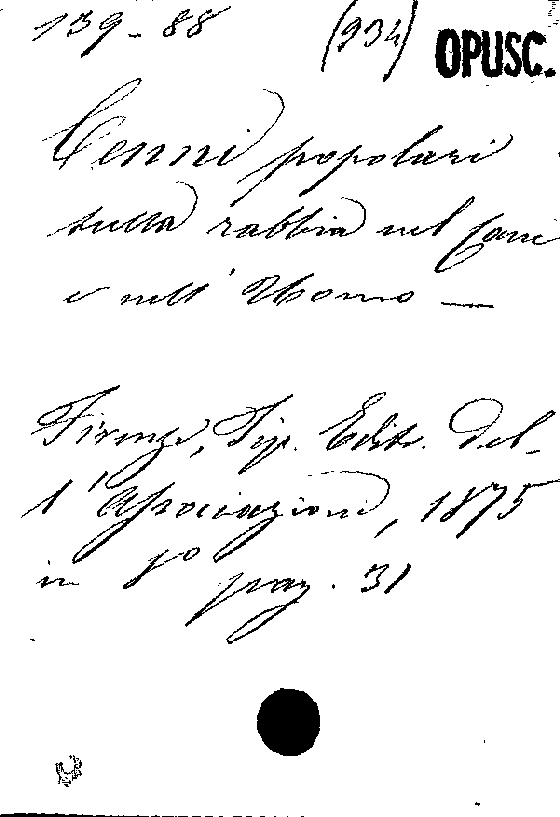 139-88 (934) OPUSC.
Cenni popolari
sulla rabbia nel Cane
e nell' Uomo —
Firenze, Tip. Edit. del-
l'Associazione, 1875
in 8° pag. 31